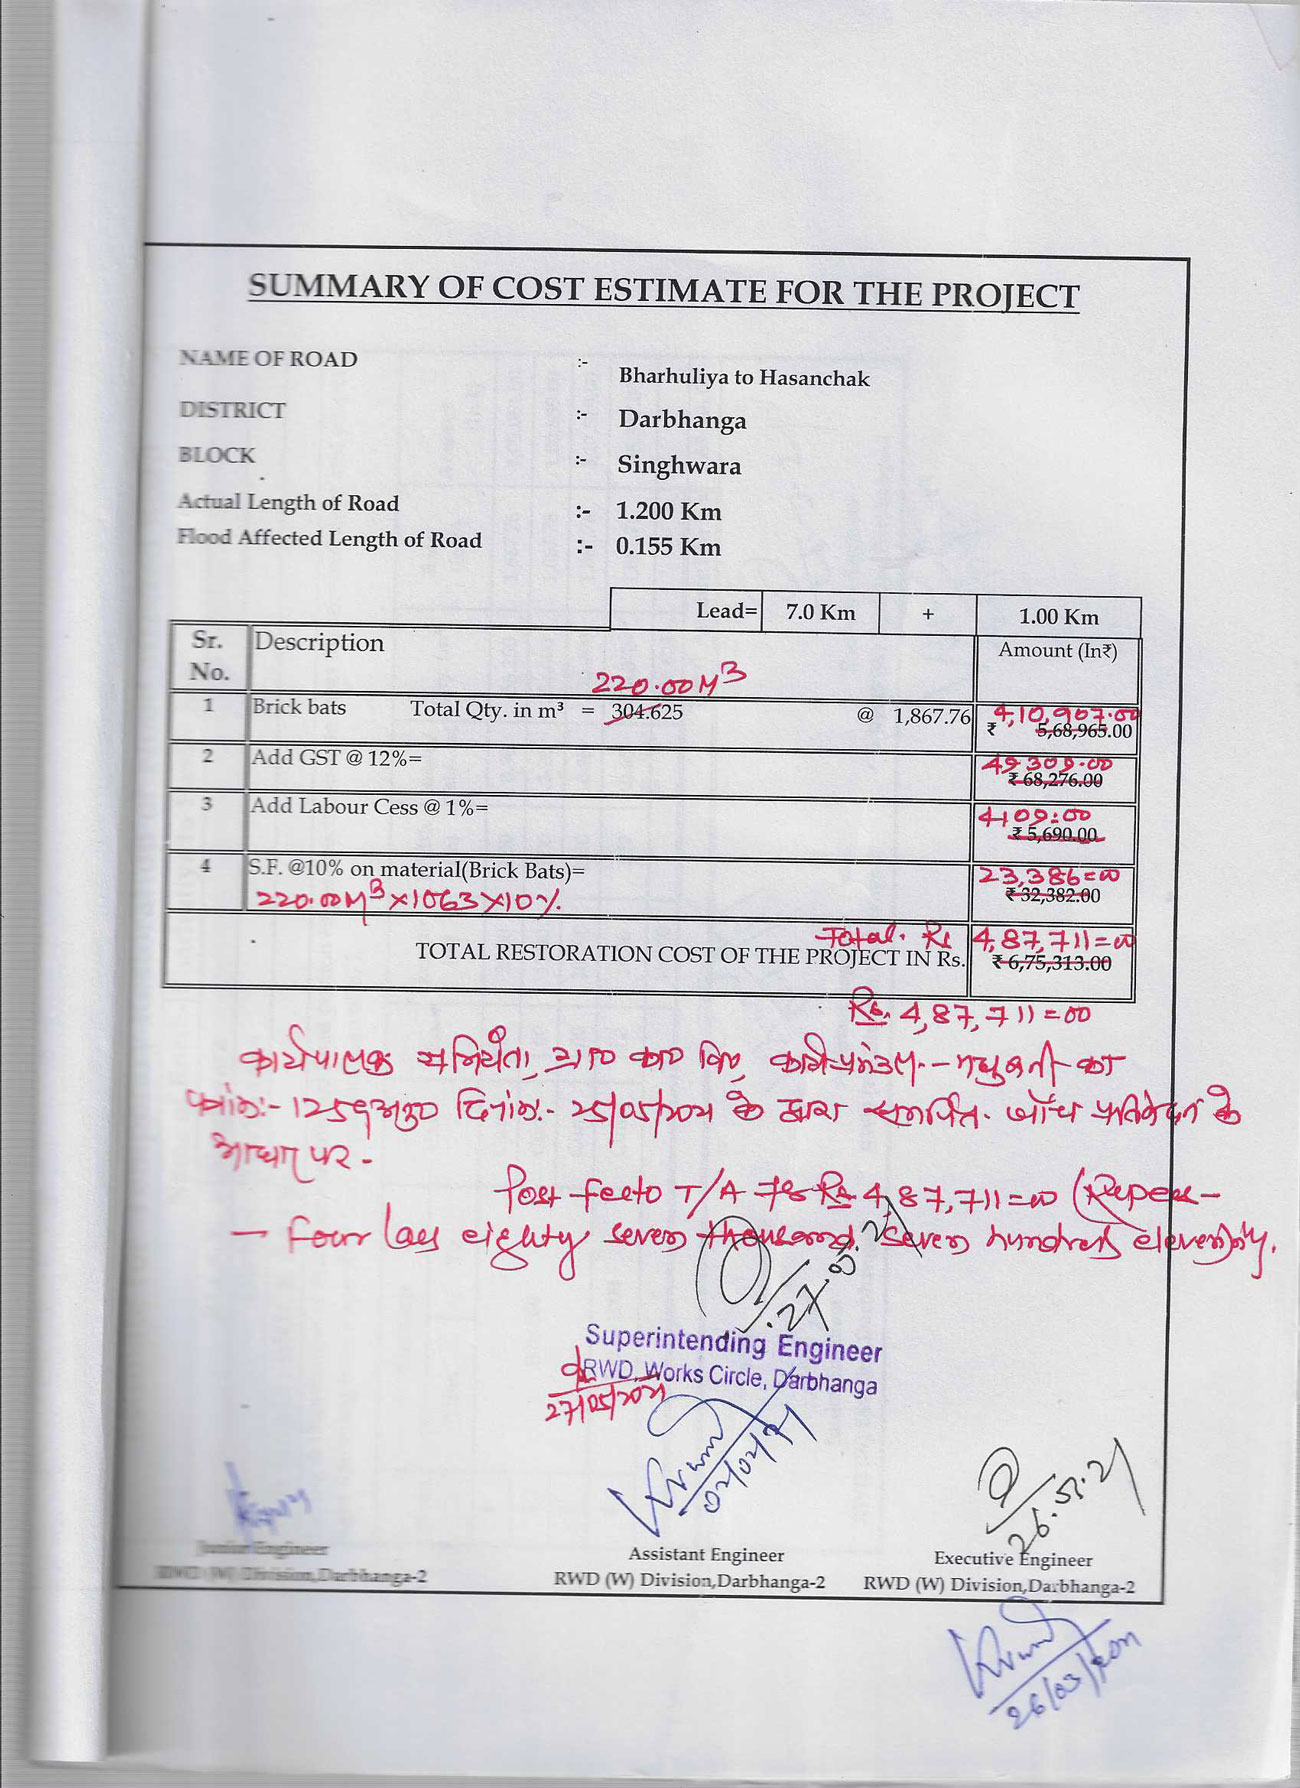 SUMMARY OF COST ESTIMATE FOR THE PROJECT
NAME OF ROAD :- Bharhuliya to Hasanchak
DISTRICT :- Darbhanga
BLOCK :- Singhwara
Actual Length of Road :- 1.200 Km
Flood Affected Length of Road :- 0.155 Km
Lead= 7.0 Km + 1.00 Km
Sr. No. Description Amount (In₹)
220.00M³
1 Brick bats Total Qty. in m³ = 304.625 @ 1,867.76 4,10,907.00
₹ 5,68,965.00
2 Add GST @ 12%= 49309.00
₹ 68,276.00
3 Add Labour Cess @ 1%= 4109.00
₹ 5,690.00
4 S.F. @10% on material(Brick Bats)= 23,386=00
220.00M³×1063×10% ₹ 32,382.00
Total. Rs 4,87,711=00
TOTAL RESTORATION COST OF THE PROJECT IN Rs. ₹ 6,75,313.00
Rs. 4,87,711=00
कार्यपालक अभियंता, मधुबनी का
दिनांक:- 25/05/2021 के द्वारा समर्पित जाँच प्रतिवेदन के
आधार पर -
Post fecto T/A Rs 4,87,711=00 (Rupees-
- four lacs eighty seven thousand seven hundred eleven)only.
27.05.21
Superintending Engineer
RWD, Works Circle, Darbhanga
27/05/2021
02/02/21
26.05.21
Junior Engineer Assistant Engineer Executive Engineer
RWD (W) Division,Darbhanga-2 RWD (W) Division,Darbhanga-2 RWD (W) Division,Darbhanga-2
26/03/2021